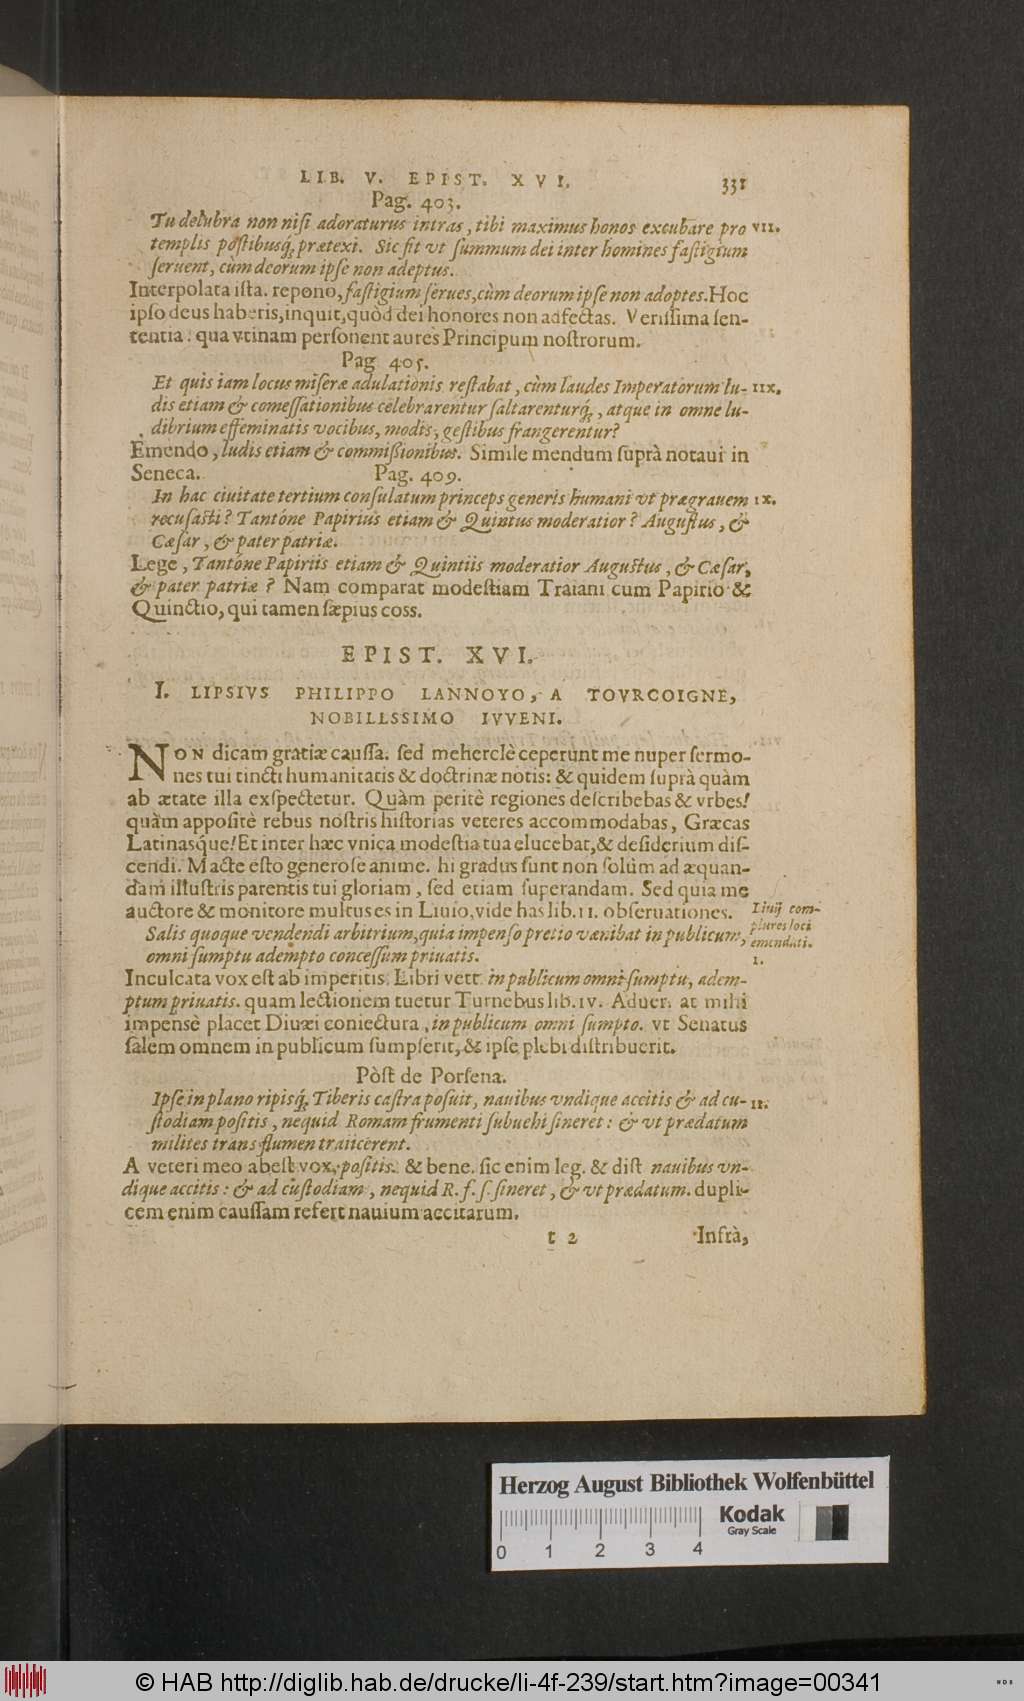 LIB. V. EPIST. XVI. 331
Pag. 403.
Tu delubra non nisi adoraturus intras, tibi maximus honos excubare pro VII.
templis postibusq́; prætexi. Sic fit vt summum dei inter homines fastigium
seruent, cùm deorum ipse non adeptus.
Interpolata ista. repono, fastigium serues, cùm deorum ipse non adoptes. Hoc
ipso deus haberis, inquit, quòd dei honores non adfectas. Verissima sen-
tentia: qua vtinam personent aures Principum nostrorum.
Pag 405.
Et quis iam locus miseræ adulationis restabat, cùm laudes Imperatorum lu- IIX.
dis etiam & comessationibus celebrarentur saltarenturq́;, atque in omne lu-
dibrium effeminatis vocibus, modis, gestibus frangerentur?
Emendo, ludis etiam & commißionibus. Simile mendum suprà notaui in
Seneca. Pag. 409.
In hac ciuitate tertium consulatum princeps generis humani vt prægrauem IX.
recusasti? Tantóne Papirius etiam & Quintus moderatior? Augustus, &
Cæsar, & pater patriæ.
Lege, Tantóne Papiriis etiam & Quintiis moderatior Augustus, & Cæsar,
& pater patriæ? Nam comparat modestiam Traiani cum Papirio &
Quinctio, qui tamen sæpius coss.
EPIST. XVI.
I. LIPSIVS PHILIPPO LANNOYO, A TOVRCOIGNE,
NOBILISSIMO IVVENI.
NON dicam gratiæ caussa. sed meherclè ceperunt me nuper sermo-
nes tui tincti humanitatis & doctrinæ notis: & quidem suprà quàm
ab ætate illa exspectetur. Quàm peritè regiones describebas & vrbes!
quàm appositè rebus nostris historias veteres accommodabas, Græcas
Latinasq́ue! Et inter hæc vnica modestia tua elucebat, & desiderium dis-
cendi. Macte esto generose anime. hi gradus sunt non solùm ad æquan-
dam illustris parentis tui gloriam, sed etiam superandam. Sed quia me
auctore & monitore multus es in Liuio, vide has lib. II. obseruationes. Liuij com-
plures loci
emendati.
Salis quoque vendendi arbitrium, quia impenso pretio vænibat in publicum,
omni sumptu adempto concessum priuatis. I.
Inculcata vox est ab imperitis. Libri vett. in publicum omni sumptu, adem-
ptum priuatis. quam lectionem tuetur Turnebus lib. IV. Aduer. at mihi
impensè placet Diuæi coniectura, in publicum omni sumpto. vt Senatus
salem omnem in publicum sumpserit, & ipse plebi distribuerit.
Pòst de Porsena.
Ipse in plano ripisq́; Tiberis castra posuit, nauibus vndique accitis & ad cu- II.
stodiam positis, nequid Romam frumenti subuehi sineret: & vt prædatum
milites trans flumen traiicerent.
A veteri meo abest vox, positis. & bene. sic enim leg. & dist. nauibus vn-
dique accitis: & ad custodiam, nequid R. f. s. sineret, & vt prædatum. dupli-
cem enim caussam refert nauium accitarum.
t 2 Infrà,
Herzog August Bibliothek Wolfenbüttel
Kodak
Gray Scale
0 1 2 3 4
© HAB http://diglib.hab.de/drucke/li-4f-239/start.htm?image=00341